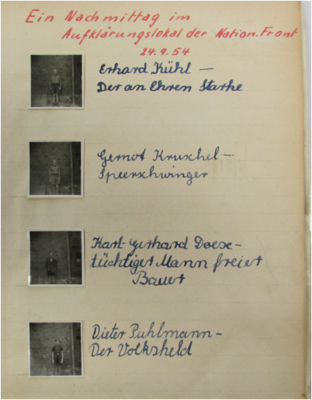 Ein Nachmittag im
Aufklärungslokal der Nation. Front
24.9.54
Erhard Kühl –
Der an Ehren Starke
Gernot Kruschel –
Speerschwinger
Karl-Gerhard Doese –
tüchtiger Mann freier
Bauer
Dieter Puhlmann –
Der Volksheld